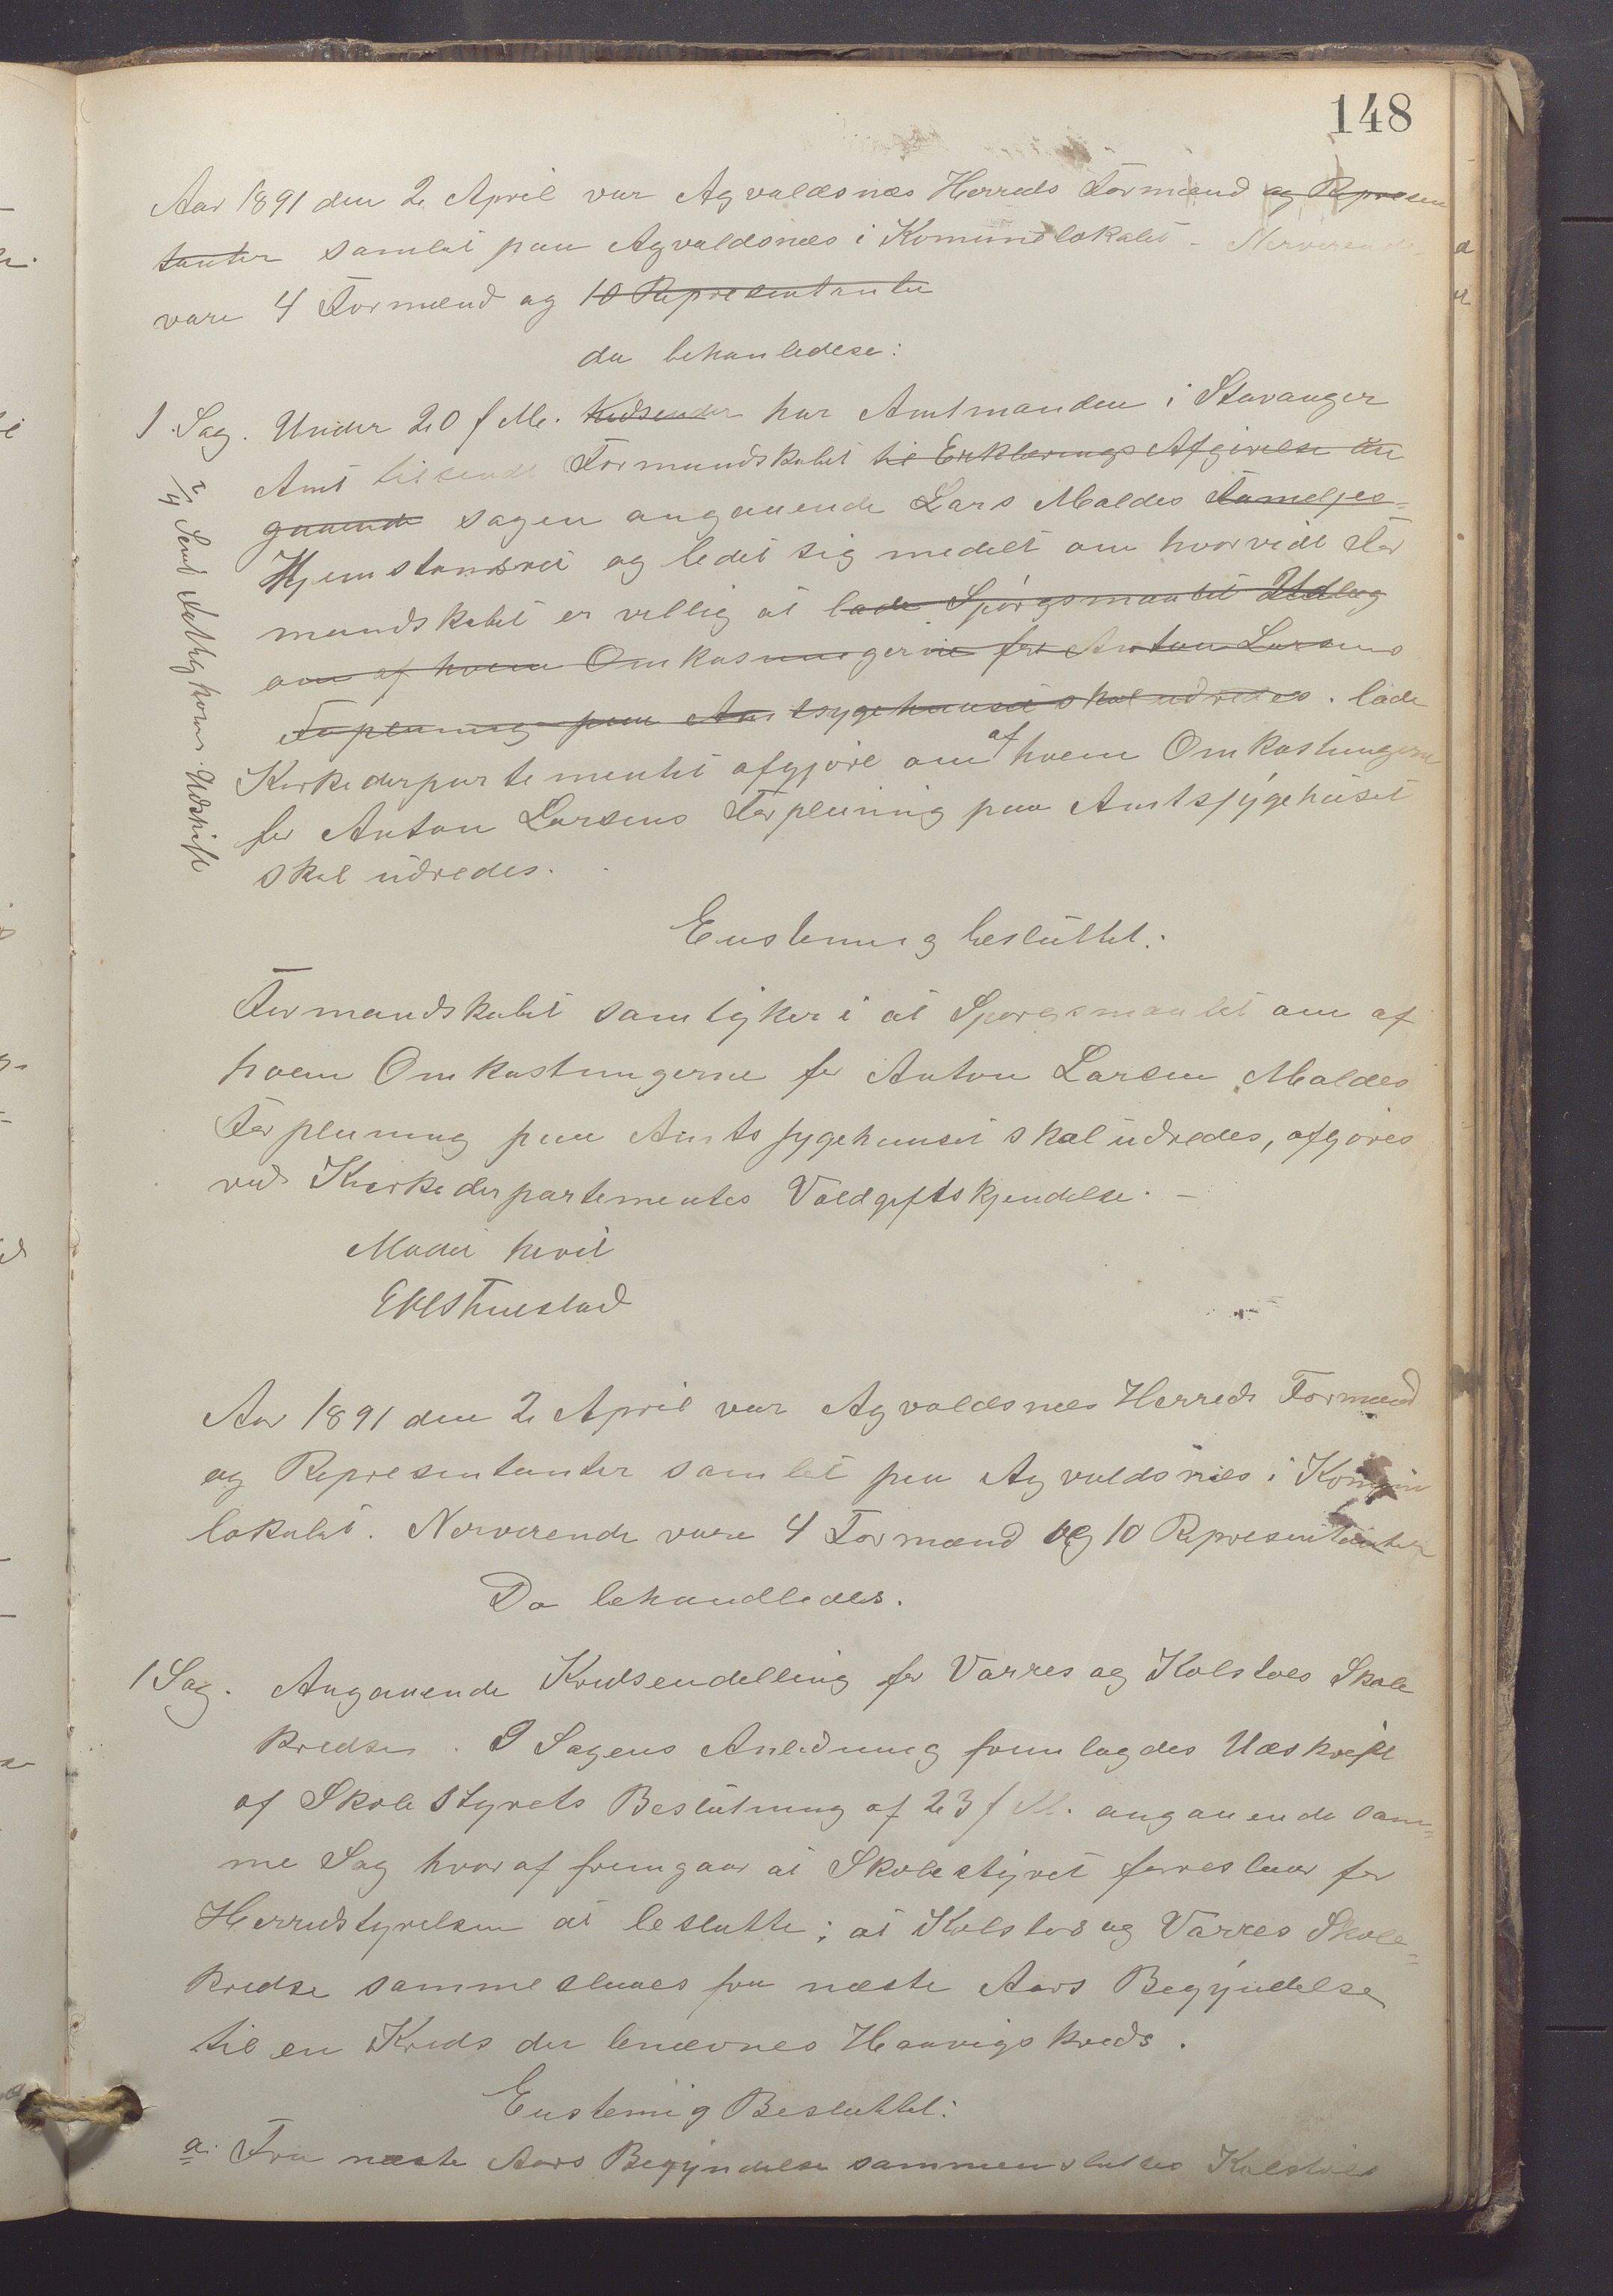 148
Aar 1891 den 2 April var Agvaldsnæs Herreds Formænd og Represen
tanter samlet paa Agvaldsnæs i Komunelokalet - Nerverende
vare 4 Formænd og 10 Representanter
da behanledese:
1 Sag. Under 20 f M. har Amtmanden i Stavanger
Amt tilsendt Formandskabet til Erklerings Afgivelse an
gaaende sagen angaaende Lars Maldes Fameljes-
Hjemstansret og ledet sig medelt om hvorvidt For
mandskabet er villig at lade Spørgsmaalet Udlæg
om af hvem Omkosningerne for Anton Larsens
Forplening paa Amtsygehuuset skal udredes. lade
Kirkederpartementet afgjøre om af hvem Omkostningerne
for Anton Larsens Forplening paa Amtssygehuset
skal udredes.
2/4 Sent Udskrift
Enstemig besluttet:
Formandskabet samtyker i at Spørgsmaalet om af
hvem Omkostningerne for Anton Larsen Maldes
Forplening paa Amtssygehuuset skal udredes, afgjøres
ved Kirkederpartementes Voldgiftskjendelse. -
Mødet hevet
Aar 1891 den 2 April var Agvaldsnæs Herreds Formænd
og Representanter samlet paa Agvaldsnæs i Komun
lokalet. Nerverende vare 4 Formænd og 10 Representanter
Da behandledes.
1 Sag. Angaaende Kredsendelling for Vårres og Kolstøes Skole
kredse. I Sagens Anledning fremlagdes Udskrift
af Skole Styrets Beslutning af 23 f M. angaaende sam=
me Sag hvoraf fremgaar at Skolestyret foreslaar for
Herredstyrelsen at beslutte; at Kolstøs og Vårres Skole=
kredse sammeslaaes fra næste Aars Begyndelse
til en Kreds der benævnes Haavigs kreds.
Enstemig Besluttet:
a. Fra næste Aars Begyndelse sammensluttes Kolstøes